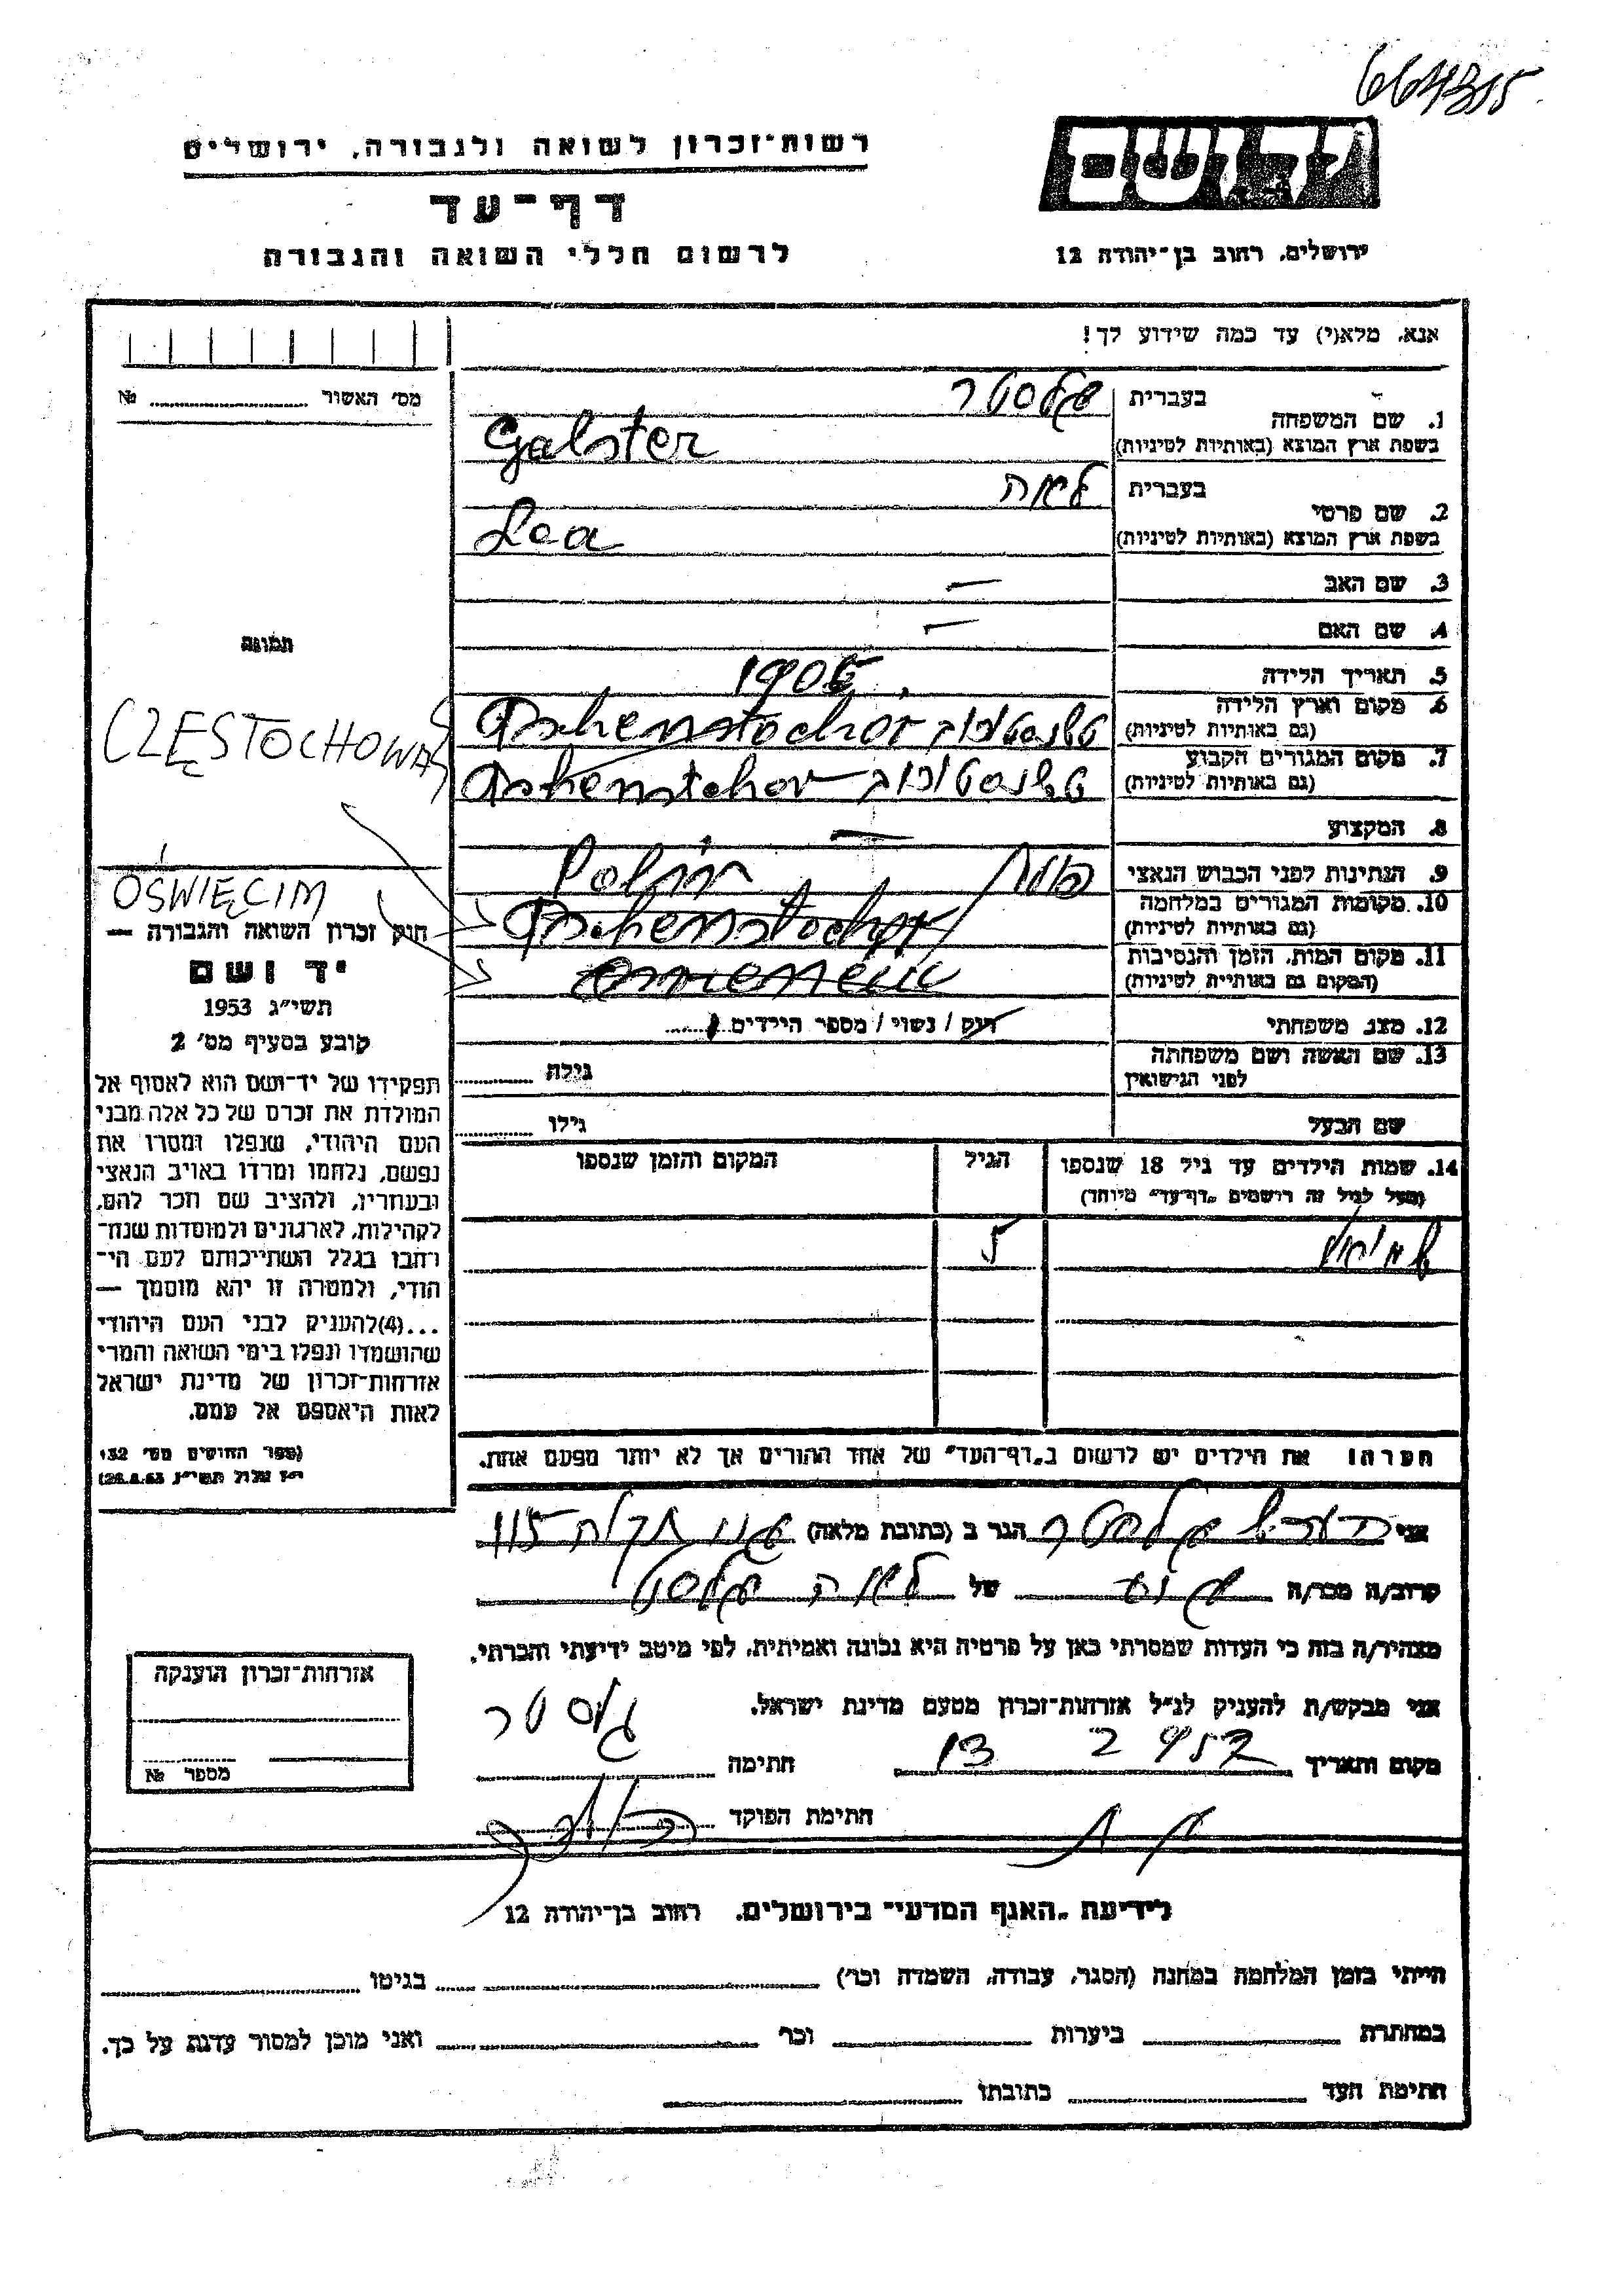 664315
יד ושם
רשות-זכרון לשואה ולגבורה, ירושלים
דף-עד
לרשום חללי השואה והגבורה
ירושלים, רחוב בן-יהודה 12
אנא, מלא(י) עד כמה שידוע לך!
מס' האשור № ..........
1. שם המשפחה
בעברית גלסטר
בשפת ארץ המוצא (באותיות לטיניות) Galster
2. שם פרטי
בעברית לאה
בשפת ארץ המוצא (באותיות לטיניות) Lea
3. שם האב —
4. שם האם —
5. תאריך הלידה 1905
6. מקום וארץ הלידה
(גם באותיות לטיניות)
7. מקום המגורים הקבוע
(גם באותיות לטיניות)
8. המקצוע —
9. הנתינות לפני הכבוש הנאצי
10. מקומות המגורים במלחמה
(גם באותיות לטיניות)
11. מקום המות, הזמן והנסיבות
(המקום גם באותיית לטיניות)
12. מצב משפחתי רוק / נשוי / מספר הילדים 1
13. שם האשה ושם משפחתה
לפני הנישואין
גילה ..........
שם הבעל גילו ..........
תמונה
CZĘSTOCHOWA
OŚWIĘCIM
חוק זכרון השואה והגבורה —
יד ושם
תשי"ג 1953
קובע בסעיף מס' 2
תפקידו של יד-ושם הוא לאסוף אל
המולדת את זכרם של כל אלה מבני
העם היהודי, שנפלו ומסרו את
נפשם, נלחמו ומרדו באויב הנאצי
ובעוזריו, ולהציב שם וזכר להם,
לקהילות, לארגונים ולמוסדות שנח-
רחבו בגלל השתייכותם לעם הי-
הודי, ולמטרה זו יהא מוסמך —
...(4)להעניק לבני העם היהודי
שהושמדו ונפלו בימי השואה והמרי
אזרחות-זכרון של מדינת ישראל
לאות היאספם אל עמם.
(ספר החוקים מס' 132
י"ז אלול תשי"ג 28.8.53)
14. שמות הילדים עד גיל 18 שנספו
(מעל לגיל זה רושמים "דף-עד" מיוחד)
הגיל
המקום והזמן שנספו
5
הערה: את הילדים יש לרשום ב"דף-העד" של אחד ההורים אך לא יותר מפעם אחת.
אני גלסטר הגר ב (כתובת מלאה) 115
קרוב/ה מכר/ה של לאה גלסטר
מצהיר/ה בזה כי העדות שמסרתי כאן על פרטיה היא נכונה ואמיתית, לפי מיטב ידיעתי והכרתי.
אני מבקש/ת להעניק לנ"ל אזרחות-זכרון מטעם מדינת ישראל.
מקום ותאריך 13 2 957 חתימה גלסטר
חתימת הפוקד
אזרחות-זכרון הוענקה
מספר №
לידיעת "האגף המדעי" בירושלים, רחוב בן-יהודה 12
הייתי בזמן המלחמה במחנה (הסגר, עבודה, השמדה וכו') .......... בגיטו ..........
במחתרת .......... ביערות .......... וכו' .......... ואני מוכן למסור עדות על כך.
חתימת העד .......... כתובתו ..........